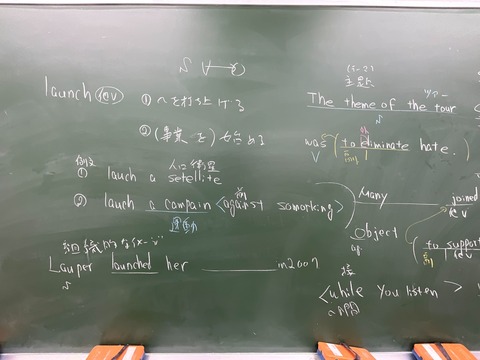 S V → O
launch 他V ① 〜を打ち上げる
② (事業を) 始める
例文
人工衛星
① lauch a setellite
② lauch a campain <against somorking>
前
運動
組織的な
Lauper launched her ______ in 2007
S
主題
ツアー
The theme of the tour
S
was (to eliminate hate.)
V
Many joined
Object
(to support
接
<while you listen>